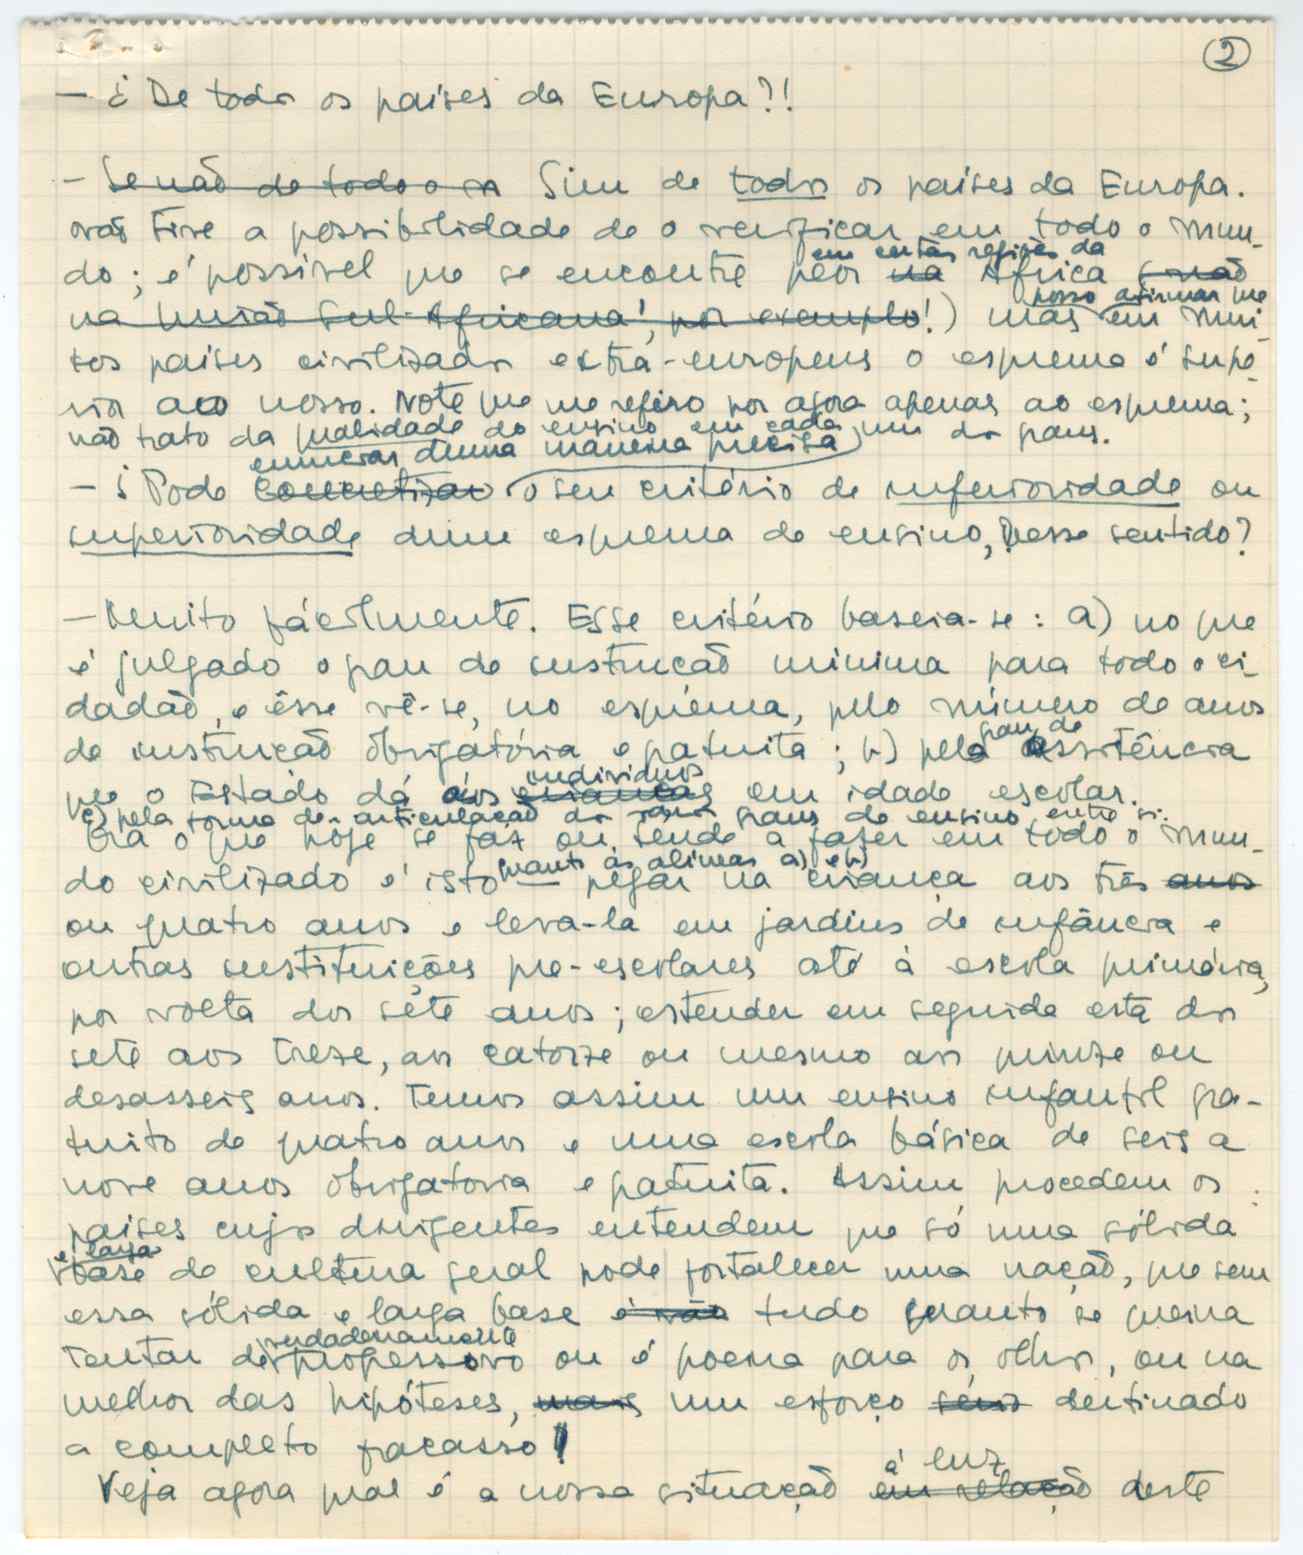 2
— ¿ De todos os países da Europa?!
— Se não de todos os Sim de todos os países da Europa.
não tive a possibilidade de o verificar em todo o mun-
em certas regiões da
do; é possível que se encontre peor na Africa (senão
posso afirmar que
na União Sul-Africana!, por exemplo!) mas em mui-
tos países civilizados extra-europeus o esquema é supe-
rior ao nosso. Note que me refiro por agora apenas ao esquema;
não trato da qualidade do ensino em cada um dos graus.
enunciar duma maneira precisa
— ¿ Pode concretizar o seu critério de inferioridade ou
superioridade dum esquema de ensino, nesse sentido?
— Muito fácilmente. Esse critério baseia-se: a) no que
é julgado o grau de instrução mínima para todo o ci-
dadão, e êsse vê-se, no esquema, pelo número de anos
grau de
de instrução obrigatória e gratuita; b) pelo assistência
individuos
que o Estado dá aos crianças em idade escolar.
c) pela forma de articulação dos vários graus de ensino entre si.
Ora o que hoje se faz ou tende a fazer em todo o mun-
quanto às alíneas a) e b)
do civilizado é isto — pegar na criança aos três anos
ou quatro anos e leva-la em jardins de infância e
outras instituições pre-escolares até à escola primária,
por volta dos sete anos; estender em seguida esta dos
sete aos treze, aos catorze ou mesmo aos quinze ou
desasseis anos. Temos assim um ensino infantil gra-
tuito de quatro anos e uma escola básica de seis a
nove anos obrigatoria e gratuita. Assim procedem os
países cujos dirigentes entendem que só uma sólida
e larga
base de cultura geral pode fortalecer uma nação, que sem
essa sólida e larga base é vão tudo quanto se queira
verdadeiramente
tentar de progressivo ou é poeira para os olhos, ou na
melhor das hipóteses, mais um esforço sério destinado
a completo fracasso!
à luz
Veja agora qual é a nossa situação em relação deste